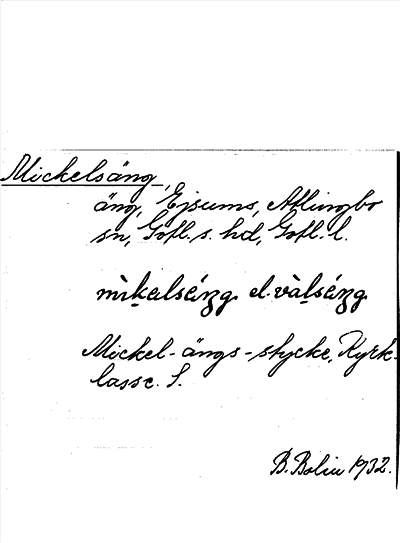 Mickelsäng,
äng, Ejsums, Atlingbo
sn, Gotl. s. hd, Gotl. l.
mìkelséŋg. el. vàlséŋg
Mickel-ängs-stycke, Kyrk-
lasse. S.
B. Bolin 1932.